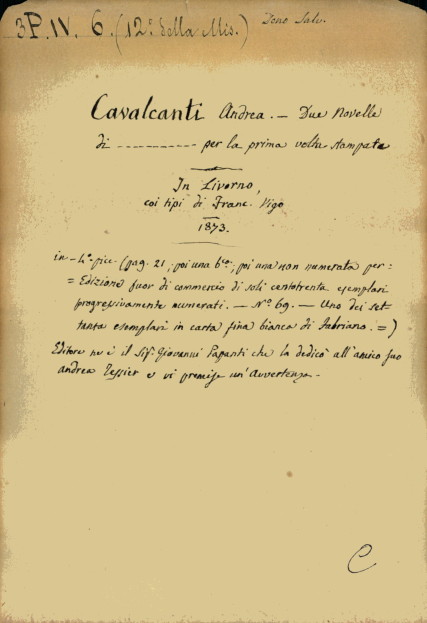 3P. IV. 6. (12.° della Mis.) Dono Salv.
Cavalcanti Andrea. — Due Novelle
di ---------- per la prima volta stampate
In Livorno,
coi tipi di Franc. Vigo
1873.
in-4.° picc. (pag. 21, poi una b.ca; poi una non numerata per:
= Edizione fuor di commercio di soli centotrenta esemplari
progressivamente numerati. — N.° 69. — Uno dei set-
tanta esemplari in carta fina bianca di Fabriano. =)
Editore ne è il Sig. Giovanni Papanti che la dedicò all'amico suo
Andrea Tessier e vi premise un'Avvertenza.
C